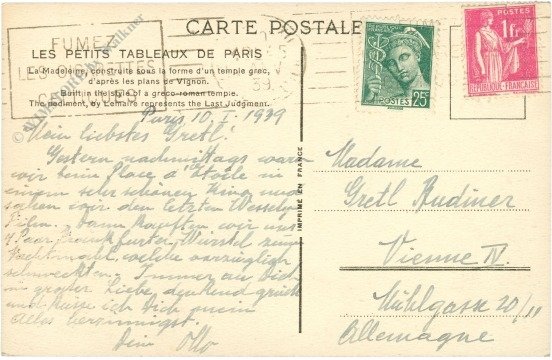 CARTE POSTALE
FUMEZ
LES
LES PETITS TABLEAUX DE PARIS
La Madeleine, construite sous la forme d'un temple grec,
d'après les plans de Vignon.
Built in the style of a greco-roman temple.
The pediment, by Lemaire represents the Last Judgment.
39
POSTES 25c
POSTES
1F
RÉPUBLIQUE FRANÇAISE
IMPRIMÉ EN FRANCE
Paris 10. I. 1939
Mein liebstes Gretl!
Gestern nachmittags waren
wir beim Place d'Etoile in
einem sehr schönen Kino und
sahen wir den letzten
Film. Dann kauften wir uns
4 Paar Frankfurter Würstel zum
Nachtmahl, welche vorzüglich
schmeckten. Immer an Dich
in großer Liebe denkend grüsse
und küsse ich Dich mein
Alles herzinnigst.
Dein Otto
Madame
Gretl Rudiner
Vienne IV.
Mühlgasse 20/11
Allemagne